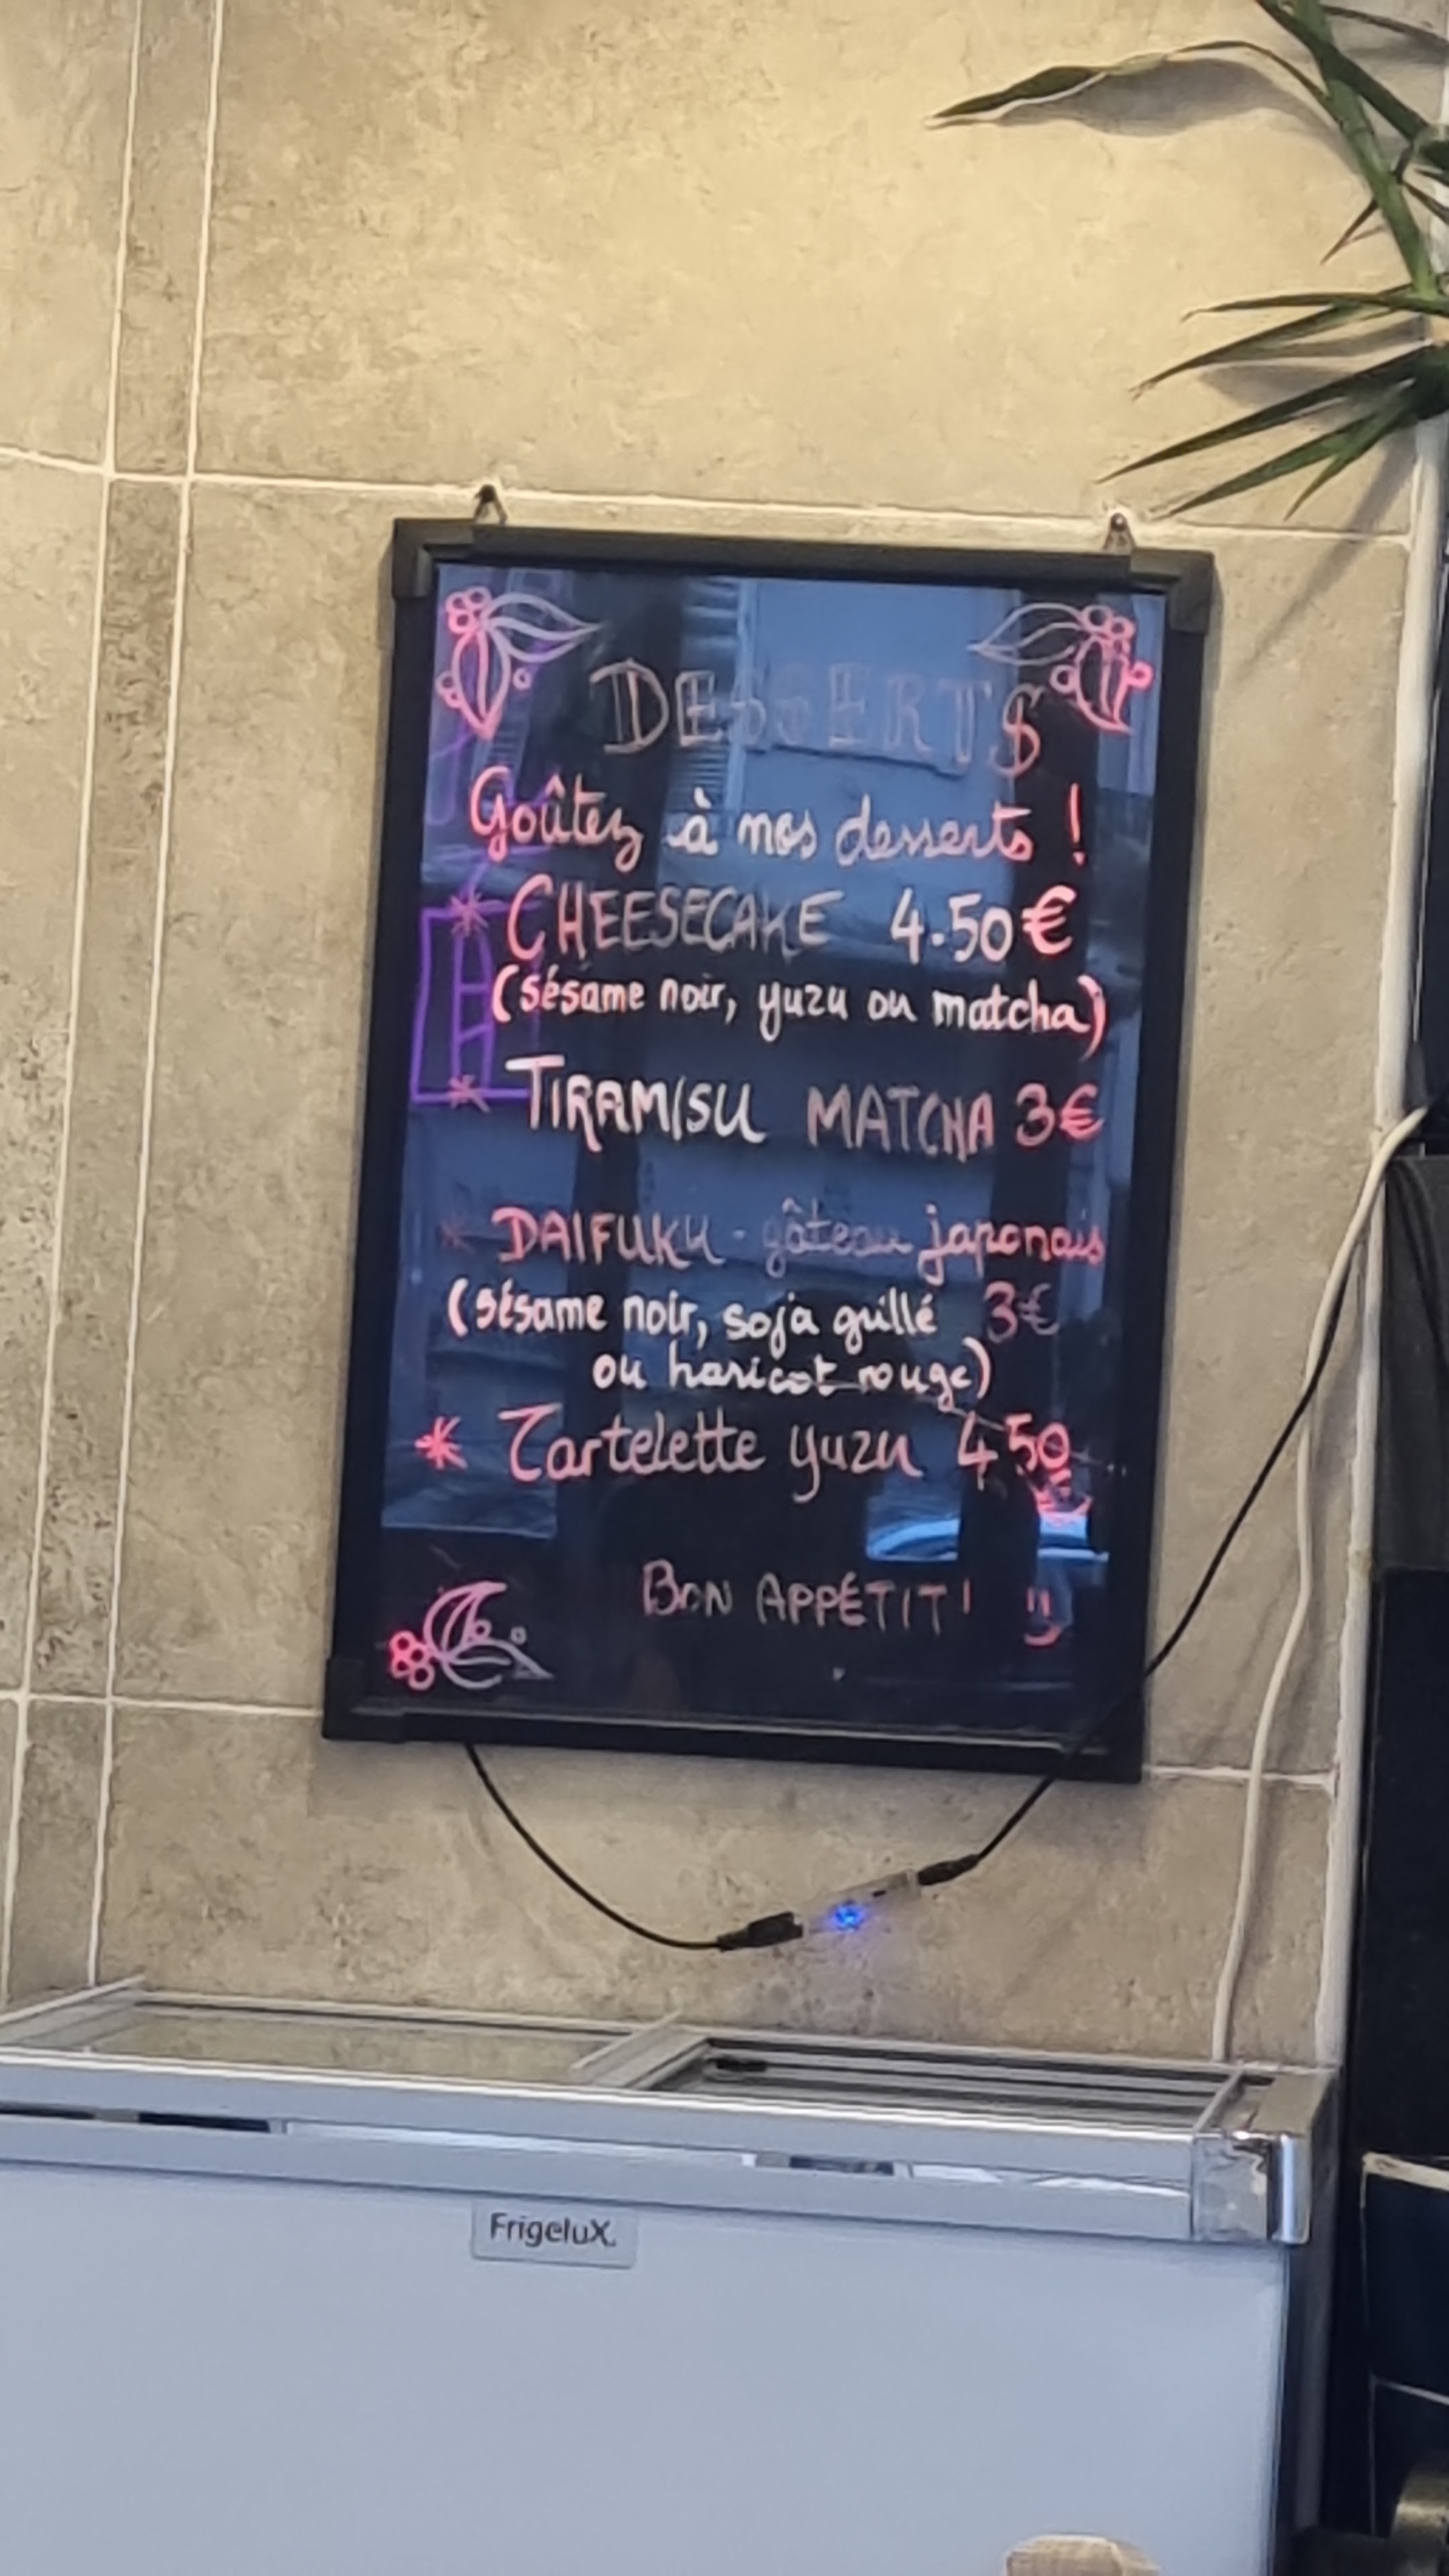 DESSERTS
Goûtez à nos desserts !
* CHEESECAKE 4.50€
(sésame noir, yuzu ou matcha)
* TIRAMISU MATCHA 3€
* DAIFUKU - gâteau japonais
(sésame noir, soja grillé 3€
ou haricot rouge)
* Tartelette yuzu 4.50
BON APPÉTIT !
FrigeluX